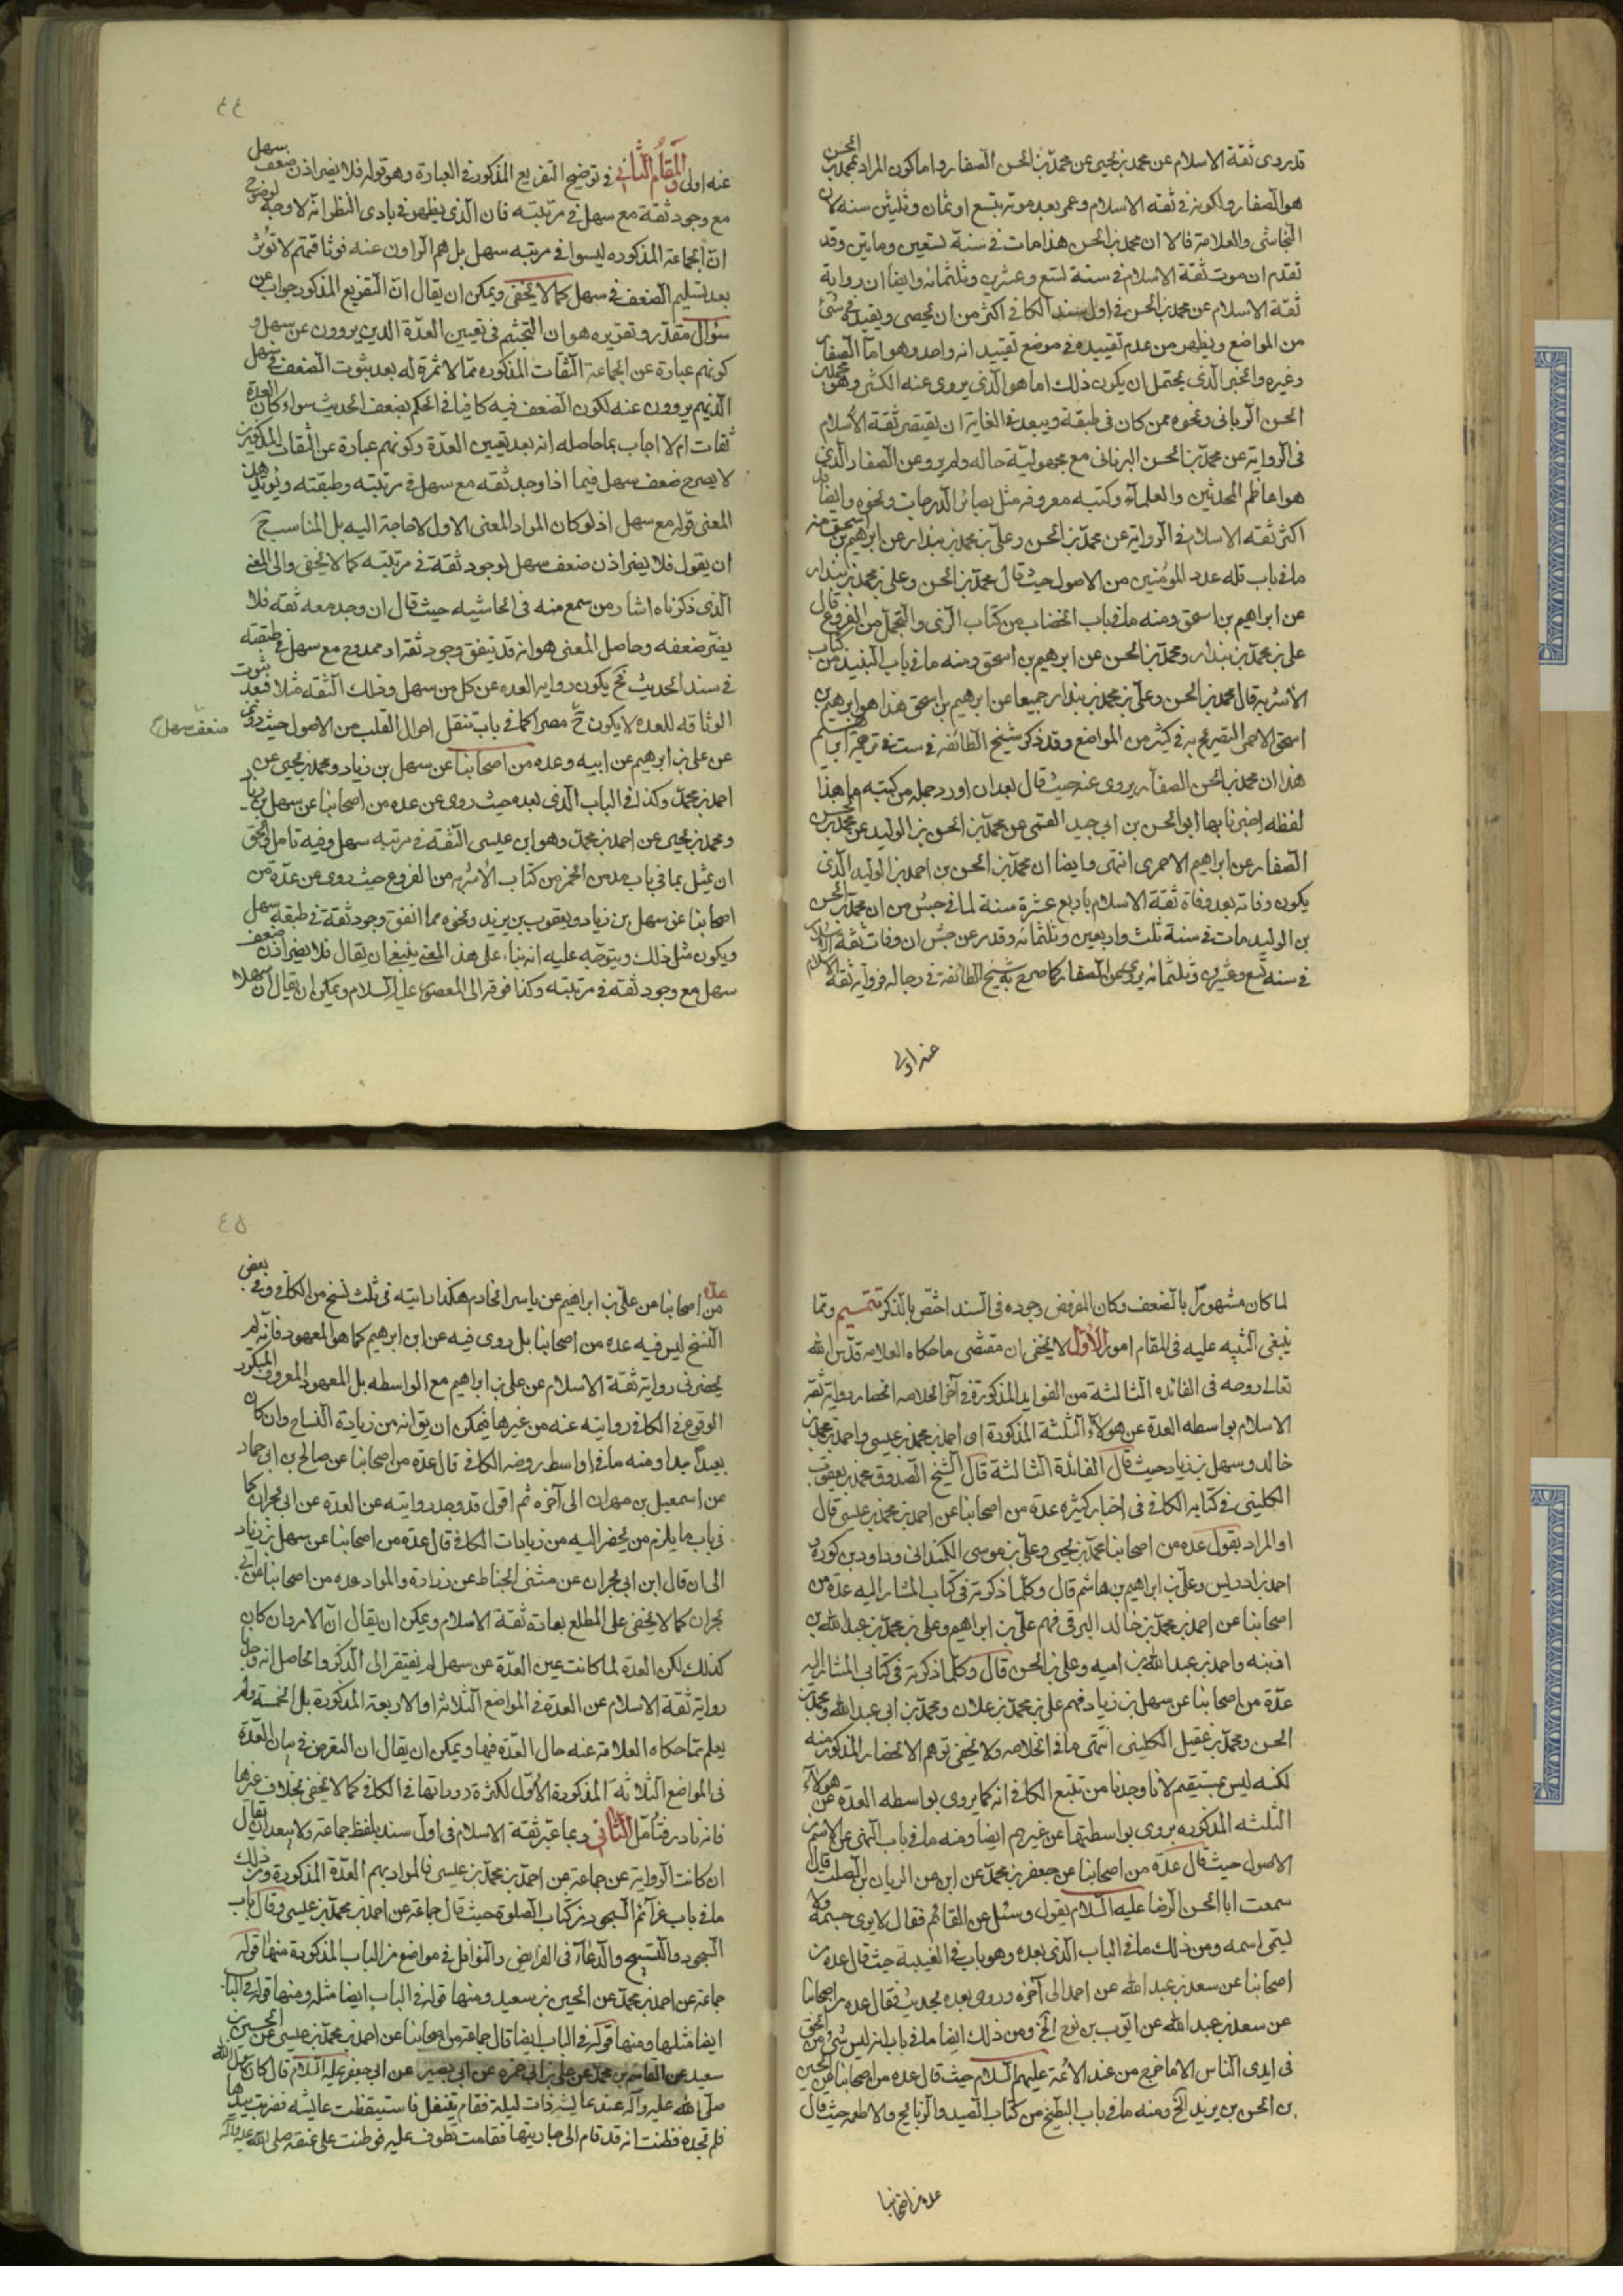 قد روى ثقة الاسلام عن محمد بن يحيى عن محمد بن الحسن الصفار واما كون المراد بمحمد بن الحسن
هو الصفار ولكونه في ثقة الاسلام وعمر بعد موته بتسع او ثمان وثلثين سنة لان
النجاشي والعلامة قالا ان محمد بن الحسن هذا مات في سنة تسعين ومايتين وقد
تقدم ان موت ثقة الاسلام في سنة تسع وعشرين وثلثمائة وايضا ان رواية
ثقة الاسلام عن محمد بن الحسن في اول سند الكافي اكثر من ان يحصى ويقيد في شئ
من المواضع ويظهر من عدم تقييده في موضع تقييد انه واحد وهو اما الصفار
وغيره والخبر الذي يحتمل ان يكون ذلك اما هو الذي يروى عنه الكشي وهو محمد بن
الحسن البرناني ونحوه ممن كان في طبقته ويبعد في الغاية ان يقتصر ثقة الاسلام
في الرواية عن محمد بن الحسن البرناني مع مجهولية حاله ولم يرو عن الصفار الذي
هو اعاظم المحدثين والعلماء وكتبه معروفه مثل بصائر الدرجات ونحوه وايضا قد
اكثر ثقة الاسلام في الرواية عن محمد بن الحسن وعلي بن محمد بن بندار عن ابرهيم بن اسحق منه
ما في باب قله عدد المؤمنين من الاصول حيث قال محمد بن الحسن وعلي بن محمد بن بندار
عن ابراهيم بن اسحق ومنه ما في باب الخضاب من كتاب الزي والتجمل من الفروع قال
علي بن محمد بن بندار ومحمد بن الحسن عن ابرهيم بن اسحق ومنه ما في باب النبيذ من كتاب
الأشربة قال محمد بن الحسن وعلي بن محمد بن بندار جميعا عن ابرهيم بن اسحق هذا هو ابرهيم بن
اسحق الاحمر التصريح به في كثير من المواضع وقد ذكر شيخ الطائفه في ست في ترجمة ابراهيم
هذا ان محمد بن الحسن الصفار يروى عنه حيث قال بعد ان اورد جمله من كتبه ما هذا
لفظه اخبرنا بها ابو الحسن بن ابي جيد القمي عن محمد بن الحسن بن الوليد عن محمد بن الحسن
الصفار عن ابراهيم الاحمري انتهى وايضا ان محمد بن الحسن بن احمد بن الوليد الذي
يكون وفاته بعد وفاة ثقة الاسلام باربع عشرة سنة لما في جش من ان محمد بن الحسن
بن الوليد مات في سنة ثلث واربعين وثلثمائه وقد مر عن جش ان وفات ثقة الاسلام
في سنة تسع وعشرين وثلثمائه يروى عن الصفار كما صرح به شيخ الطائفة في رجاله فرواية ثقة الاسلام
عنه اولى
٤٤
عنه اولى والمقام الثاني في توضيح التفريع المذكور في العبارة وهو قوله فلا يضر اذن ضعف سهل
مع وجود ثقة مع سهل في مرتبته فان الذي يظهر في بادى النظر انه لا وجه لوضوح
ان الجماعة المذكوره ليسوا في مرتبه سهل بل هم الراوون عنه فوثاقتهم لا تؤثر
بعد تسليم الضعف في سهل كما لا يخفى ويمكن ان يقال ان التفريع المذكور جواب عن
سؤال مقدر وتقريره هو ان التجشم في تعيين العدة الذين يروون عن سهل و
كونهم عبارة عن الجماعة الثقات المذكوره مما لا ثمرة له بعد ثبوت الضعف في سهل
الذي هم يروون عنه لكون الضعف فيه كافيا في الحكم بضعف الحديث سواء كان العدة
ثقات ام لا اجاب بما حاصله انه بعد تعيين العدة وكونهم عبارة عن الثقات المذكورين
لا يصح ضعف سهل فيما اذا وجد ثقه مع سهل في مرتبته وطبقته ويؤيد هذا
المعنى قوله مع سهل اذ لو كان المراد المعنى الاول لا حاجة اليه بل المناسب ح
ان يقول فلا يضر اذن ضعف سهل لوجود ثقة في مرتبته كما لا يخفى والى المعنى
الذي ذكرناه اشار من سمع منه في الحاشيه حيث قال ان وجد معه ثقه فلا
يضر ضعفه وحاصل المعنى هو انه قد يتفق وجود ثقه او ممدوح مع سهل في طبقته
في سند الحديث فح يكون رواية العده عن كل من سهل وذلك الثقه مثلا فبعد ثبوت
الوثاقه للعده لا يكون ح مضرا كما في باب تنقل احوال القلب من الاصول حيث روى
ضعف سهل
عن علي بن ابرهيم عن ابيه وعده من اصحابنا عن سهل بن زياد ومحمد بن يحيى عن
احمد بن محمد وكذا في الباب الذي بعده حيث روى عن عده من اصحابنا عن سهل بن زياد
ومحمد بن يحيى عن احمد بن محمد وهو ابن عيسى الثقة في مرتبه سهل وفيه تامل والحق
ان يمثل بما في باب مدمن الخمر من كتاب الأشربه من الفروع حيث روى عن عدة من
اصحابنا عن سهل بن زياد ويعقوب بن يزيد ونحوه مما اتفق وجود ثقة في طبقه سهل
ويكون مثل ذلك ويتوجه عليه انه بناء على هذا المعنى ينبغي ان يقال فلا يضر اذن ضعف
سهل مع وجود ثقه في مرتبته وكذا فوقه الى المعصوم عليه السلام ويمكن ان يقال ان سهلا
لما كان مشهورا بالضعف وكان المفروض وجوده في السند اختص بالذكر تتميم ومما
ينبغي التنبيه عليه في المقام امور الأول لا يخفى ان مقتضى ما حكاه العلامه قدس الله
تعالى روحه في الفائده الثالثة من الفوايد المذكورة في آخر الخلاصه انحصار رواية ثقة
الاسلام بواسطه العدة عن هولاء الثلثة المذكورة اى احمد بن محمد بن عيسى واحمد بن محمد بن
خالد وسهل بن زياد حيث قال الفائدة الثالثة قال الشيخ الصدوق محمد بن يعقوب
الكليني في كتابه الكافي في اخبار كثيره عدة من اصحابنا عن احمد بن محمد بن عيسى قال
او المراد بقول عده من اصحابنا محمد بن يحيى وعلي بن موسى الكمنداني وداود بن كورة و
احمد بن ادريس وعلي بن ابراهيم بن هاشم قال وكلما ذكرته في كتاب المشار اليه عدة من
اصحابنا عن احمد بن محمد بن خالد البرقي فهم علي بن ابراهيم وعلي بن محمد بن عبد الله بن
اذينه واحمد بن عبد الله بن اميه وعلي بن الحسن قال وكلما ذكرته في كتابي المشار اليه
عدة من اصحابنا عن سهل بن زياد فهم علي بن محمد بن علان ومحمد بن ابي عبد الله ومحمد بن
الحسن ومحمد بن عقيل الكليني انتهى ما في الخلاصه ولا يخفى توهم الانحصار المذكور منه
لكنه ليس بمستقيم لانا وجدنا من تتبع الكافي انه كما يروى بواسطه العدة عن هولاء
الثلثه المذكوره يروى بواسطتها عن غيرهم ايضا ومنه ما في باب النهى عن الاسم من
الاصول حيث قال عدة من اصحابنا عن جعفر بن محمد عن ابن عن الريان بن الصلت قال
سمعت ابا الحسن الرضا عليه السلام يقول وسئل عن القائم فقال لا يرى جسمه ولا
يسمى اسمه ومن ذلك ما في الباب الذي بعده وهو باب في الغيبة حيث قال عده من
اصحابنا عن سعد بن عبد الله عن احمد الى آخره وروى بعده بحديث فقال عده من اصحابنا
عن سعد بن عبد الله عن ايوب بن نوح الخ ومن ذلك ايضا ما في باب انه ليس شئ من الحق
في ايدى الناس الا ما خرج من عند الأئمة عليهم السلام حيث قال عده من اصحابنا عن الحسين
بن الحسن بن يزيد الخ ومنه ما في باب البطيخ من كتاب الصيد والذبايح والاطعمه حيث قال
عدة من اصحابنا
٤٥
عدة من اصحابنا عن علي بن ابراهيم عن ياسر الخادم هكذا رايته في ثلث نسخ من الكافي وفي بعض
النسخ ليس فيه عده من اصحابنا بل روى فيه عن ابن ابرهيم كما هو المعهود فانه لم
يحضرني رواية ثقة الاسلام عن علي بن ابراهيم مع الواسطه بل المعهود المعروف المتكرر
الوقوع في الكافي روايته عنه من غيرها فيمكن ان يق انه من زيادة النساخ وان كان
بعيدا جدا ومنه ما في اواسط روضه الكافي قال عدة من اصحابنا عن صالح بن ابي حماد
عن اسمعيل بن مهران الى آخره ثم اقول قد وجد روايته عن العدة عن ابي نجران كما
في باب ما يلزم من يحفر البئر من زيادات الكافي قال عدة من اصحابنا عن سهل بن زياد
الى ان قال ابن ابي نجران عن مثنى الحناط عن زرارة والمراد عده من اصحابنا عن ابي
نجران كما لا يخفى على المطلع بعادة ثقة الاسلام ويمكن ان يقال ان الامر وان كان
كذلك لكن العدة لما كانت عين العدة عن سهل لم يفتقر الى الذكر والحاصل انه وجد
رواية ثقة الاسلام عن العدة في المواضع الثلاثة او الاربعة المذكورة بل الخمسة ولم
يعلم مما حكاه العلامة عنه حال العدة فيها ويمكن ان يقال ان التعرض في بيان العدة
في المواضع الثلاثة المذكورة الأول لكثرة دورانها في الكافي كما لا يخفى بخلاف غيرها
فانه نادر فتأمل الثاني ربما عبر ثقة الاسلام في اول سند بلفظ جماعة ولا يبعد ان يقال
ان كانت الرواية عن جماعة عن احمد بن محمد بن عيسى فالمراد بهم العدة المذكورة ومن ذلك
ما في باب عزائم السجود من كتاب الصلوة حيث قال جماعة عن احمد بن محمد بن عيسى وقال في باب
السجود والتسبيح والدعاء في الفرايض والنوافل في مواضع من الباب المذكورة منها قوله
جماعة عن احمد بن محمد عن الحسين بن سعيد ومنها قوله في الباب ايضا مثله ومنها قوله في الباب
ايضا مثلها ومنها قوله في الباب ايضا قال جماعة من اصحابنا عن احمد بن محمد بن عيسى عن الحسين بن
سعيد عن القاسم بن محمد عن علي بن ابي حمزه عن ابي بصير عن ابي جعفر عليه السلام قال كان رسول الله
صلى الله عليه وآله عند عايشة ذات ليلة فقام يتنفل فاستيقظت عايشه فضربت بيدها
فلم تجده فظنت انه قد قام الى جاريتها فقامت تطوف عليه فوطئت على عنقه صلى الله عليه وآله